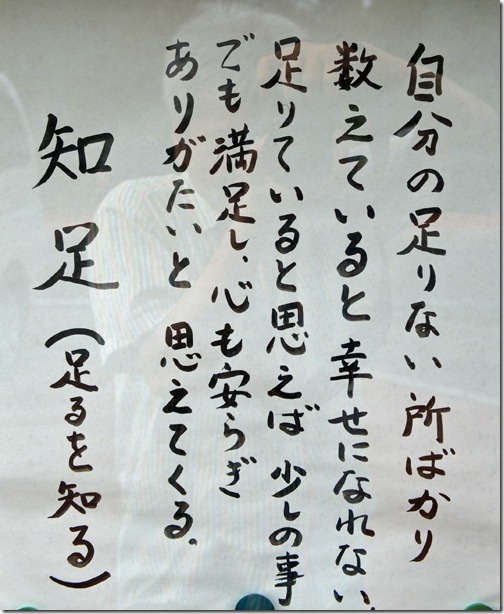 自分の足りない所ばかり
数えていると幸せになれない
足りていると思えば少しの事
でも満足し、心も安らぎ
ありがたいと思えてくる。
知足(足るを知る)